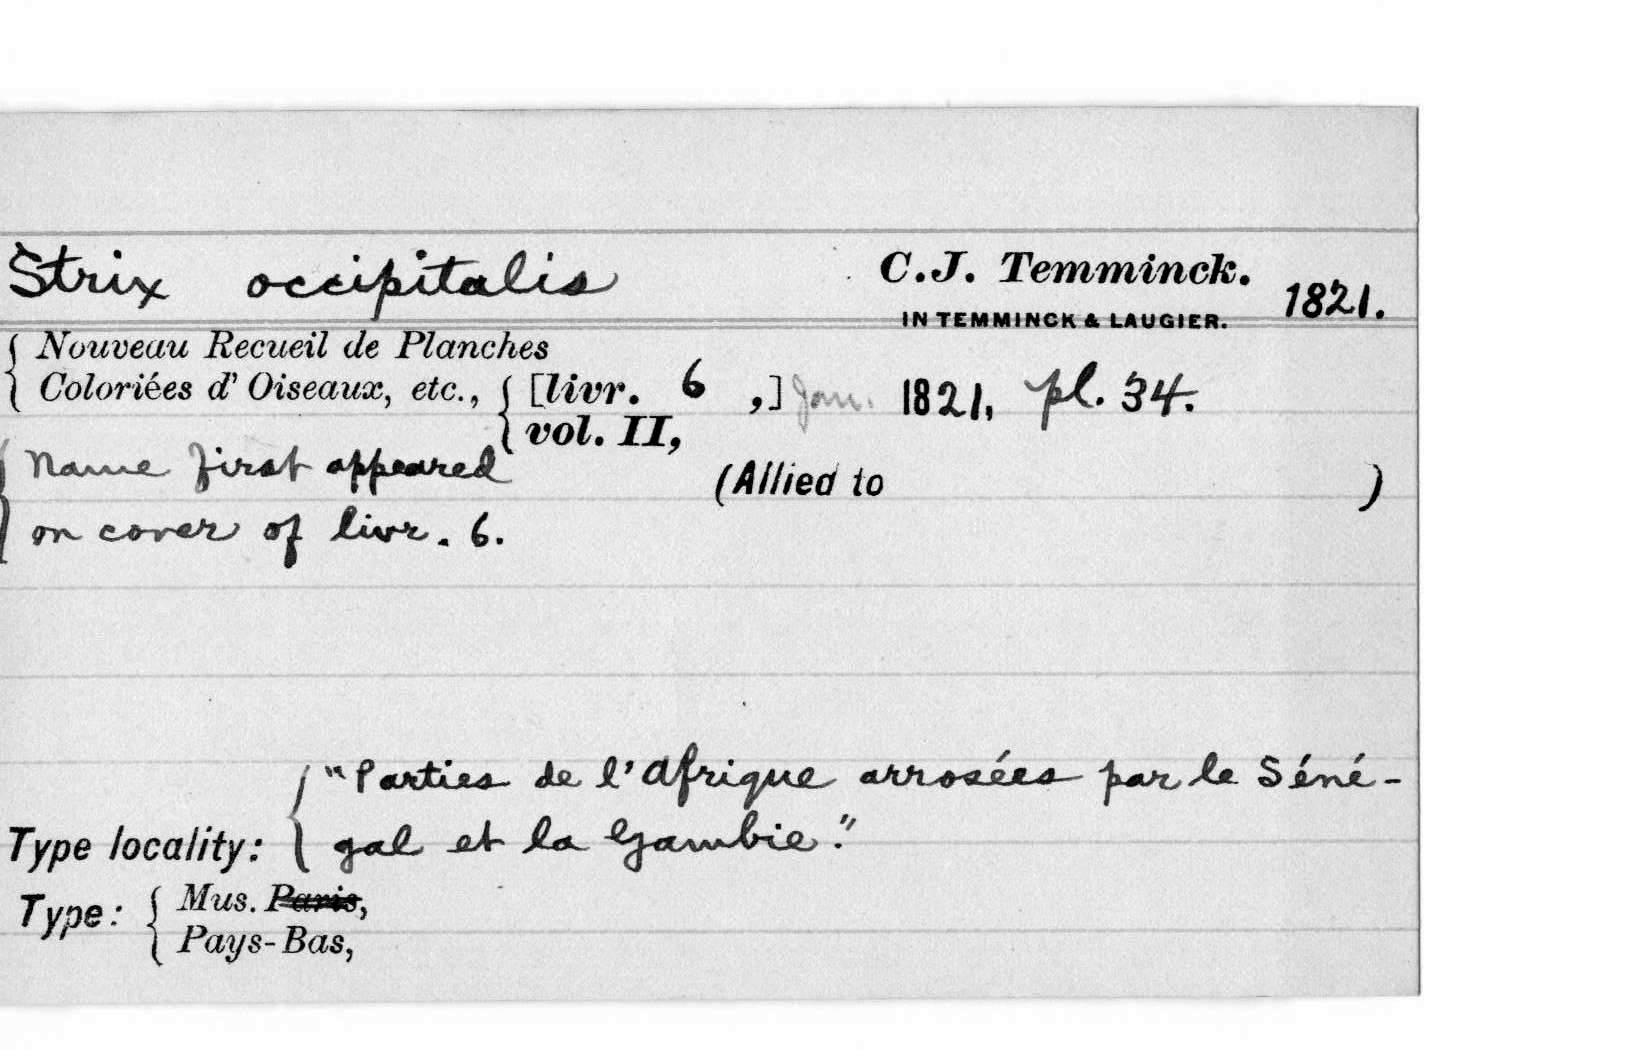 Strix occipitalis C.J. Temminck. 1821.
IN TEMMINCK & LAUGIER.
Nouveau Recueil de Planches
Coloriées d' Oiseaux, etc., [livr. 6 ,] Jan. 1821, pl. 34.
vol. II,
Name first appeared
(Allied to )
on cover of livr. 6.
"Parties de l'Afrique arrosées par le Séné-
Type locality: gal et la Gambie."
Type: Mus. Paris,
Pays-Bas,